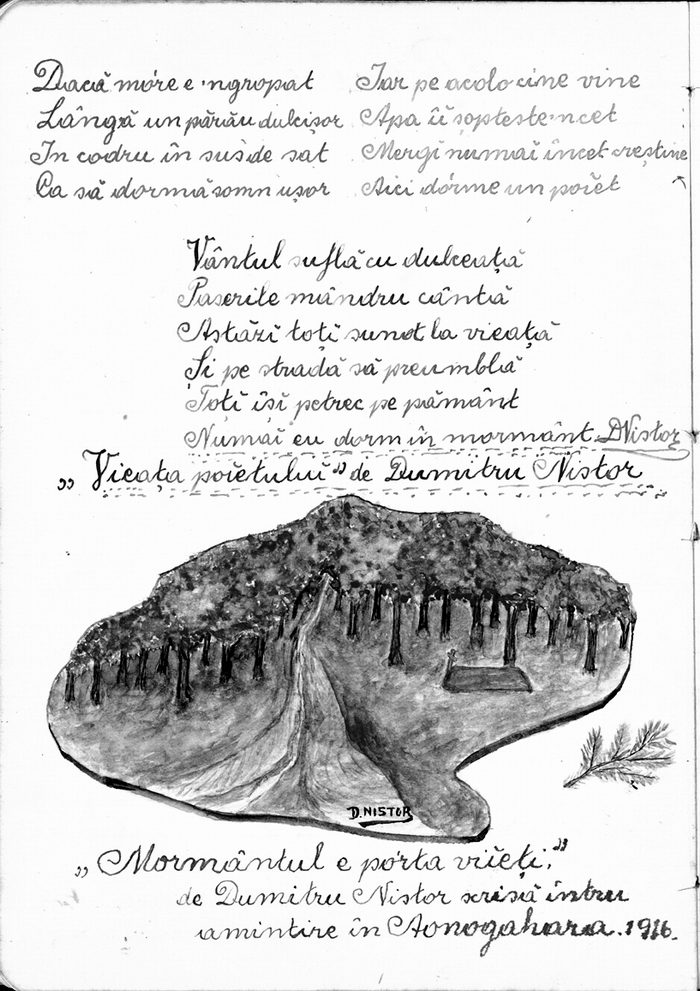 Dacă móre e 'ngropat
Lângă un părău dulcișor
In codru în sus de sat
Ca să dormă somn ușor
Iar pe acolo cine vine
Apa îi șopteste 'ncet
Mergĭ numai încet creștine
Aici dórme un poiet
Vântul suflă cu dulceață
Paserile mândru cântă
Astăzi toți sunt la vieață
Și pe stradă să preumblă
Toți își petrec pe pământ
Numai eu dorm în mormânt. DNistor
„Vieața poietului” de Dumitru Nistor
D. NISTOR
„Mormântul e pórta viieți,”
de Dumitru Nistor scrisă întru
amintire în Aonogahara. 1916.